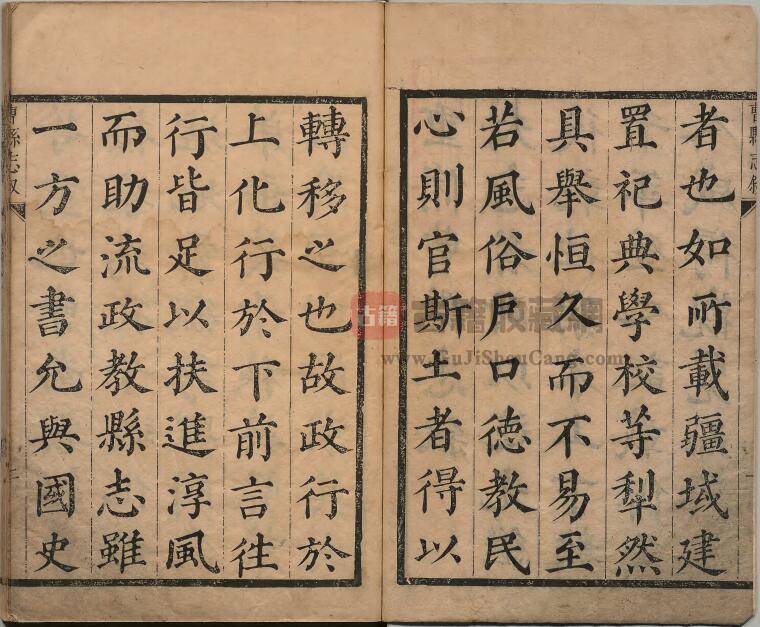 曹縣志叙
者也如所載疆域建
置祀典學校等犁然
具舉恒久而不易至
若風俗戶口德教民
心則官斯土者得以
轉移之也故政行於
上化行於下前言往
行皆足以扶進淳風
而助流政教縣志雖
一方之書允與國史
曹縣志叙
二
古籍
古籍收藏網
www.GuJiShouCang.com